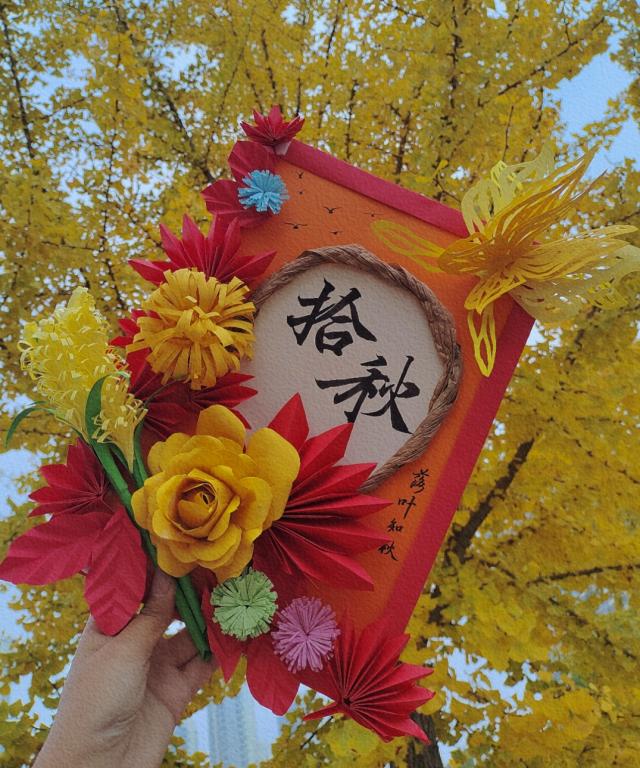 拾秋
落叶知秋